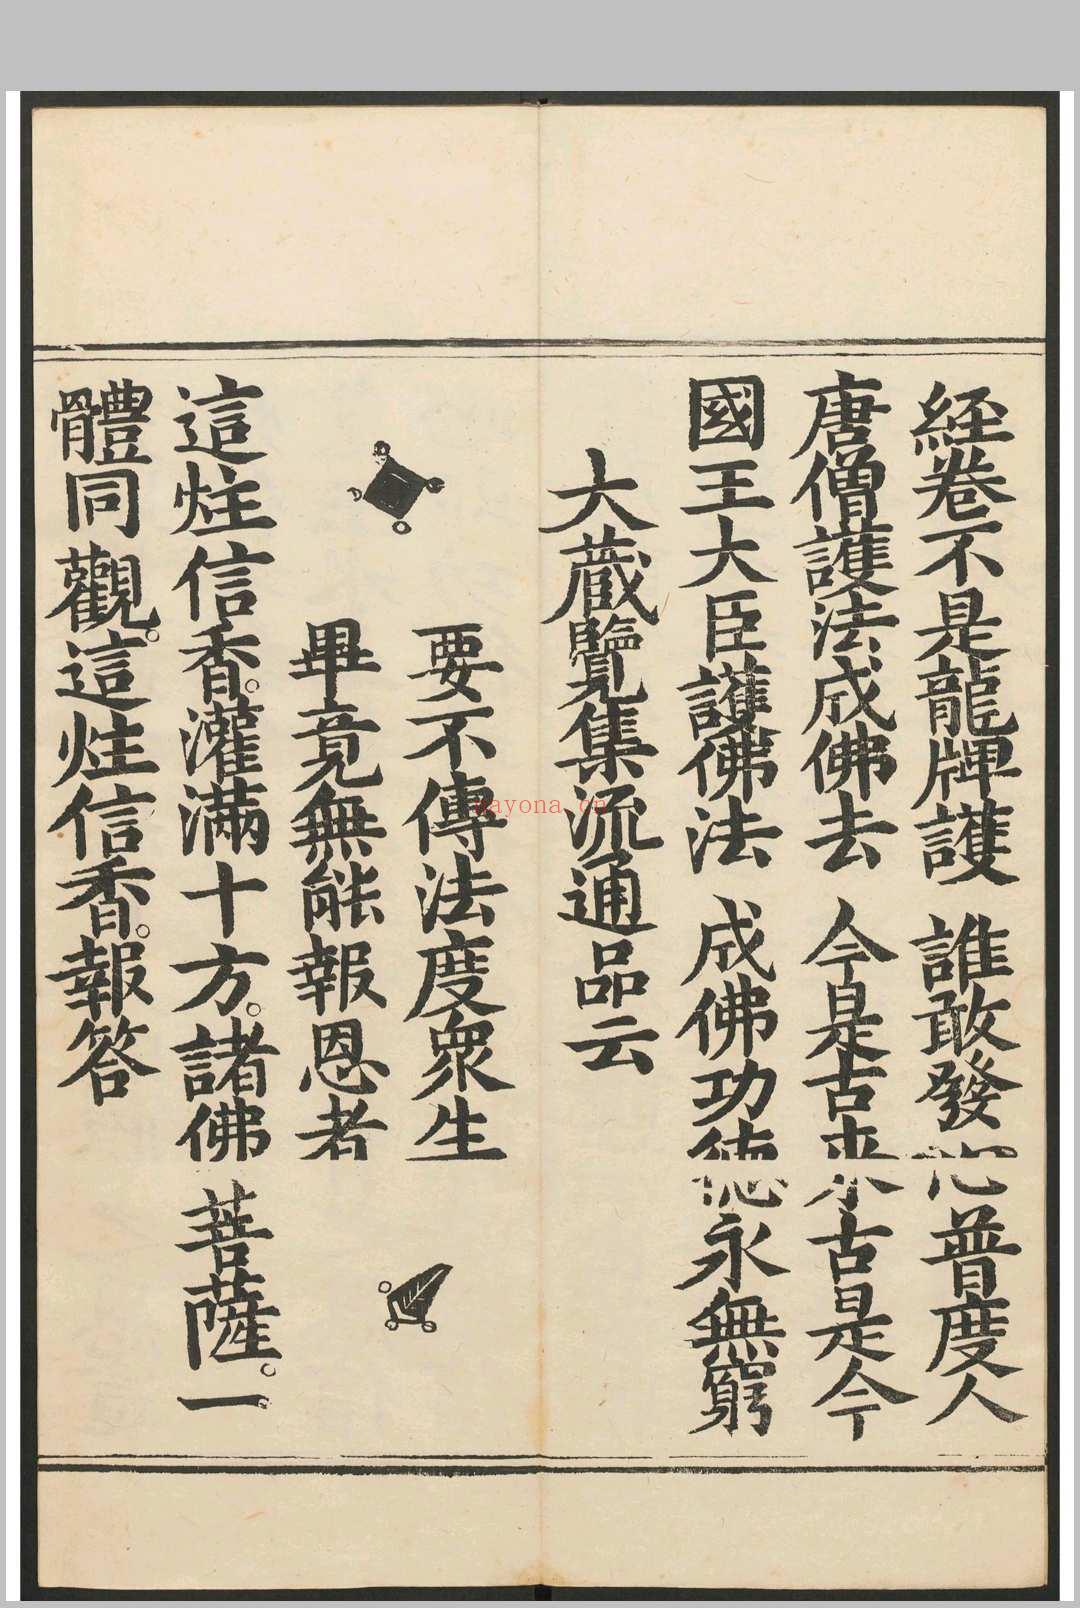 經卷不是龍牌護 誰敢發心普度人
唐僧護法成佛去 今是古來古是今
國王大臣護佛法 成佛功德永無窮
大藏覽集流通品云
要不傳法度衆生
畢竟無能報恩者
這炷信香。灌滿十方。諸佛菩薩。一
體同觀。這炷信香。報答
nayona.cn